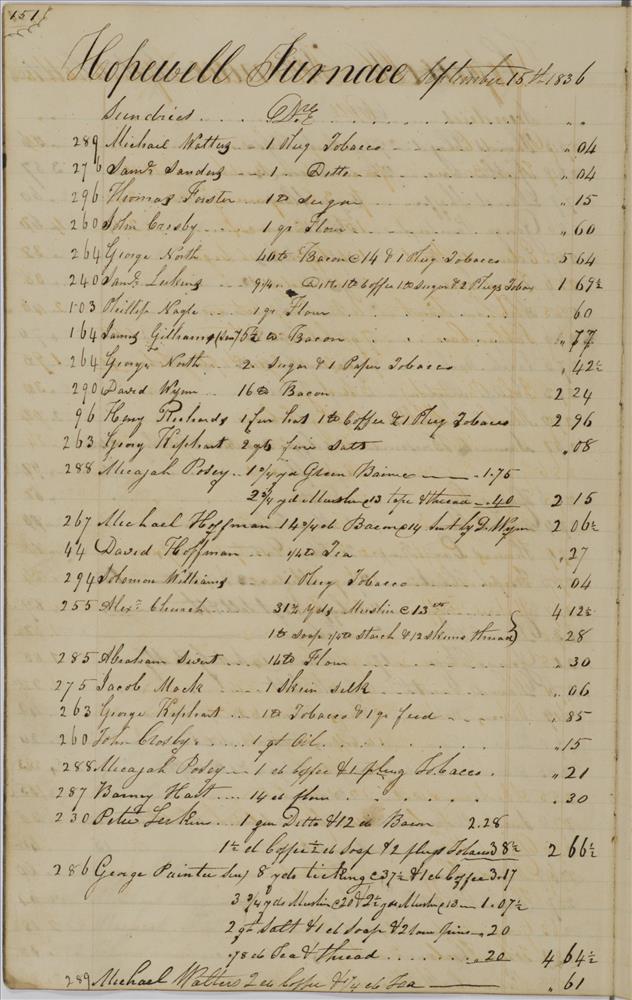 151
Hopewell Furnace September 15th 1836
Sundries .... Drs
289 Michael Watters — 1 Plug Tobacco " 04
276 Saml Sanders — 1 .. Ditto " 04
296 Thomas Forster — 1 lb Sugar " 15
260 John Crosby — 1 qr Flour " 60
264 George North 40 lb Bacon @ 14 & 1 Plug Tobacco 5 64
240 Saml Ditto 1 lb Coffee 1 lb Sugar & 2 Plugs 1 69½
103 Phillip Nagle 1 qr Flour 60
164 James (Sen) 5½ lb Bacon " 77
264 George North 2 Sugar & 1 Paper Tobacco " 42½
290 David Wynn 16 lb Bacon 2 24
96 Henry 1 fur hat 1 lb Coffee & 1 Plug Tobacco 2 96
263 Georg Kephart 2 fine Salt " 08
288 Micajah Posey 1 ¾ yd Green — 1.75
2 ¾ yd Muslin @ 13 tape & thread — .40 2 15
267 Michael Hoffman 14 ¾ lb Bacon @ 14 by D. Wynn 2 06½
44 David Hoffman ... ¼ lb Tea " 27
294 Solomon Williams 1 Plug Tobacco " 04
255 Alexr Church 31½ yds Muslin @ 13 4 12½
1 lb Soap starch & 12 skeins thread 28
285 Abraham 14 lb Flour " 30
275 Jacob Mock 1 Skein silk " 06
263 George Kephart ... 1 lb Tobacco & 1 qr feed " 85
260 John Crosby 1 qt Oil " 15
288 Micajah Posey 1 lb Coffee & 1 plug Tobacco " 21
287 Barney Hart 14 lb flour " 30
230 Peter 1 Ditto & 12 lb Bacon 2.28
1½ lb Coffee ½ lb Soap & 2 plugs Tobacco 38½ 2 66½
286 George Painter 8 yds ticking @ 37½ & 1 lb Coffee 3.17
3 ¾ yds Muslin @ 20 & 2½ yds Muslin @ 13 1.07½
2 Salt & 1 lb Soap & 2 .20
⅛ lb Tea & thread .20 4 64½
289 Michael Watters 2 lb Coffee & ¼ lb Tea " 61